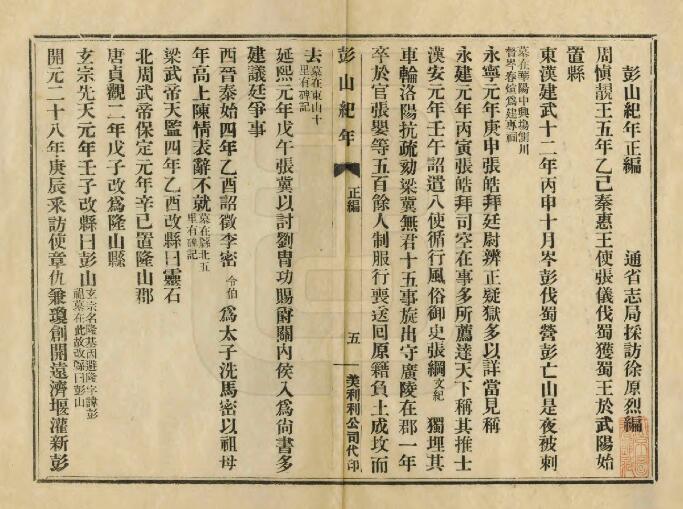 彭山紀年正編　通省志局採訪徐原烈編
周愼靚王五年乙己秦惠王使張儀伐蜀獲蜀王於武陽始
置縣
東漢建武十二年丙申十月岑彭伐蜀營彭亡山是夜被刺
墓在華陽中興場側川
督岑春煊爲建專祠
永寧元年庚申張皓拜廷尉辨正疑獄多以詳當見稱
永建元年丙寅張皓拜司空在事多所薦達天下稱其推士
漢安元年壬午詔遣八使循行風俗御史張綱文紀獨埋其
車輪洛陽抗疏劾梁冀無君十五事旋出守廣陵在郡一年
卒於官張嬰等五百餘人制服行喪送回原籍負土成坟而
彭山紀年　正編　五　美利利公司代印
去墓在東山十
里有碑記
延熙元年戊午張冀以討劉胄功賜爵關內侯入爲尙書多
建議廷爭事
西晉泰始四年乙酉詔徵李密令伯爲太子洗馬密以祖母
年高上陳情表辭不就墓在縣北五
里有碑記
梁武帝天監四年乙酉改縣曰靈石
北周武帝保定元年辛巳置隆山郡
唐貞觀二年戊子改爲隆山縣
玄宗先天元年壬子改縣曰彭山玄宗名隆基因避隆字諱彭
祖墓在此故改縣曰彭山
開元二十八年庚辰采訪使章仇兼瓊創開遠濟堰灌新彭